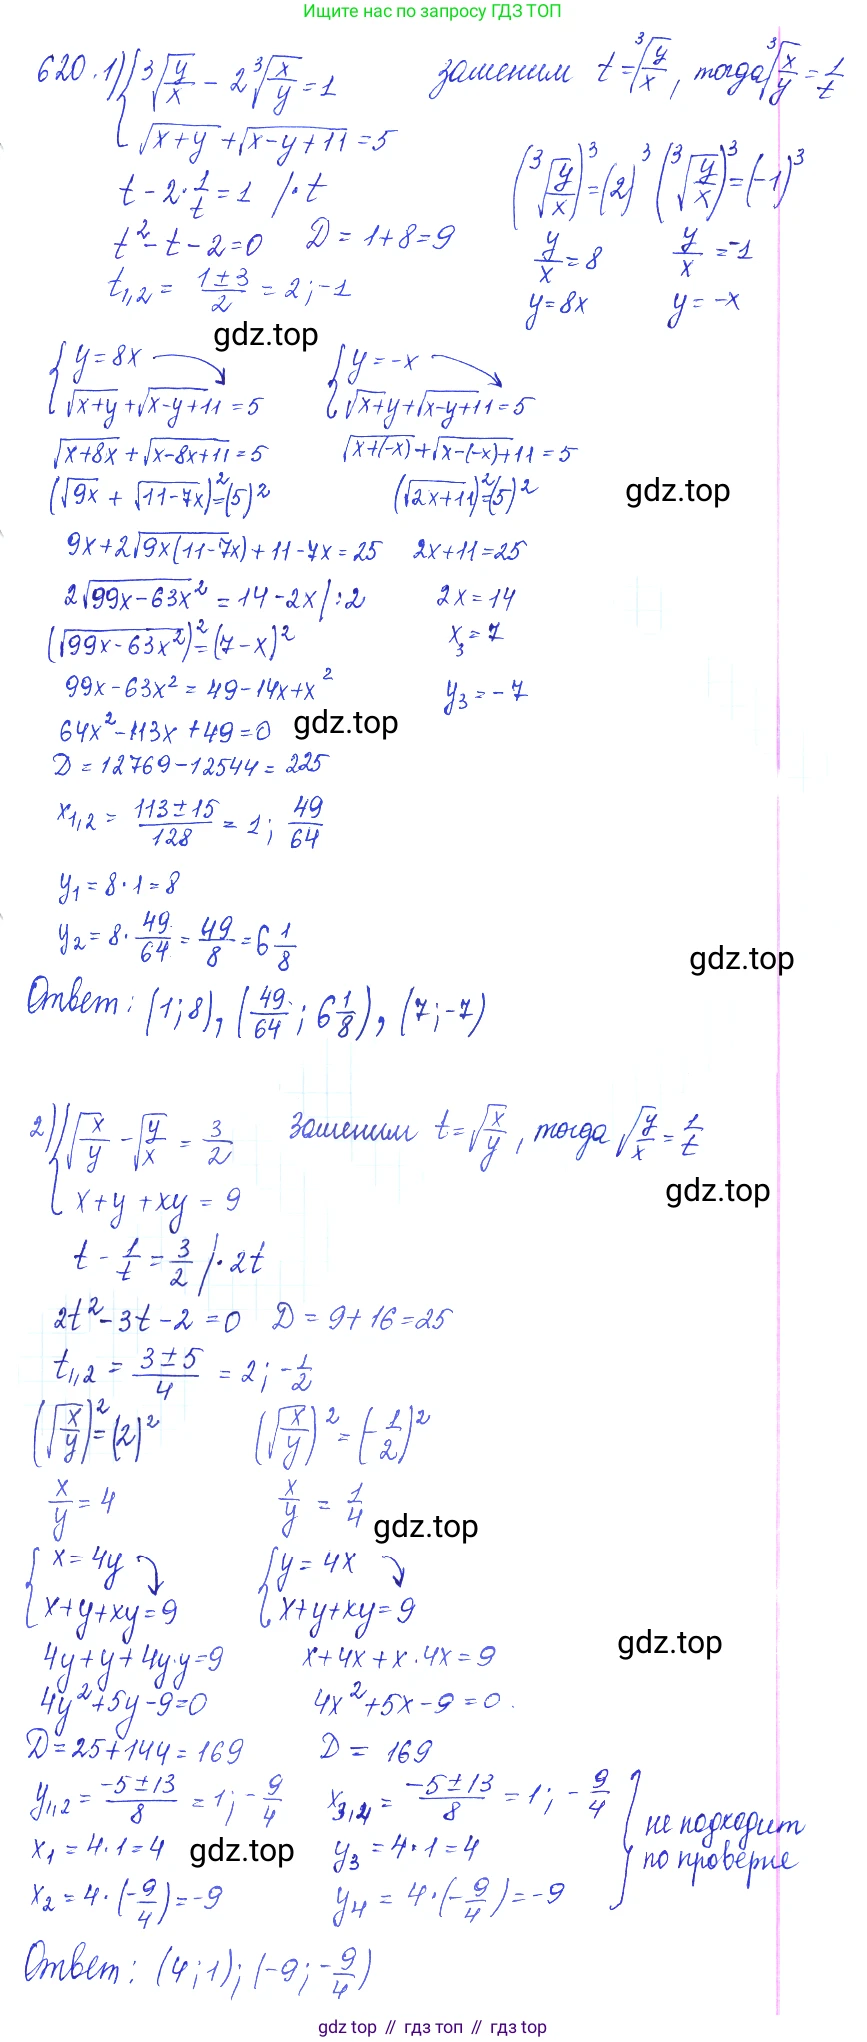 Ищите нас по запросу ГДЗ ТОП
620.1) { ∛(y/x) − 2∛(x/y) = 1    заменим t = ∛(y/x), тогда ∛(x/y) = 1/t
√(x+y) + √(x−y+11) = 5
t − 2·1/t = 1 /·t    (∛(y/x))³ = (2)³    (∛(y/x))³ = (−1)³
t² − t − 2 = 0    D = 1+8 = 9    y/x = 8    y/x = −1
t₁,₂ = (1±3)/2 = 2; −1    y = 8x    y = −x
gdz.top
{ y = 8x    { y = −x
√(x+y) + √(x−y+11) = 5    √(x+y) + √(x−y+11) = 5
√(x+8x) + √(x−8x+11) = 5    √(x+(−x)) + √(x−(−x)+11) = 5
(√9x + √(11−7x))² = (5)²    (√(2x+11))² = (5)²    gdz.top
9x + 2√(9x(11−7x)) + 11 − 7x = 25    2x+11 = 25
2√(99x−63x²) = 14 − 2x /:2    2x = 14
(√(99x−63x²))² = (7−x)²    x₃ = 7
99x − 63x² = 49 − 14x + x²    y₃ = −7
64x² − 113x + 49 = 0    gdz.top
D = 12769 − 12544 = 225
x₁,₂ = (113±15)/128 = 1; 49/64
y₁ = 8·1 = 8
y₂ = 8·49/64 = 49/8 = 6 1/8    gdz.top
Ответ: (1; 8), (49/64; 6 1/8), (7; −7)
2) { √(x/y) − √(y/x) = 3/2    заменим t = √(x/y), тогда √(y/x) = 1/t
x + y + xy = 9    gdz.top
t − 1/t = 3/2 /·2t
2t² − 3t − 2 = 0    D = 9+16 = 25
t₁,₂ = (3±5)/4 = 2; −1/2
(√(x/y))² = (2)²    (√(x/y))² = (−1/2)²
x/y = 4    x/y = 1/4    gdz.top
{ x = 4y    { y = 4x
x+y+xy = 9    x+y+xy = 9
4y+y+4y·y = 9    x+4x+x·4x = 9    gdz.top
4y²+5y−9 = 0    4x²+5x−9 = 0.
D = 25+144 = 169    D = 169
y₁,₂ = (−5±13)/8 = 1; −9/4    x₃,₄ = (−5±13)/8 = 1; −9/4 } не подходит
x₁ = 4·1 = 4    gdz.top    y₃ = 4·1 = 4    по проверке
x₂ = 4·(−9/4) = −9    y₄ = 4·(−9/4) = −9
Ответ: (4; 1); (−9; −9/4)
gdz.top // гдз топ // гдз.top